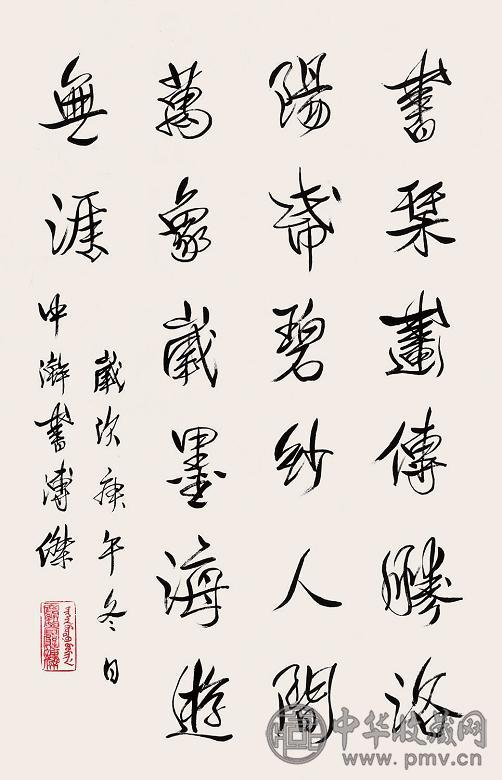 書琹畫傳勝洛
陽碧紗人間
萬象歲墨海遊
無涯
歲次庚午冬日
中澣書溥傑
中华收藏网
www.pmv.cn